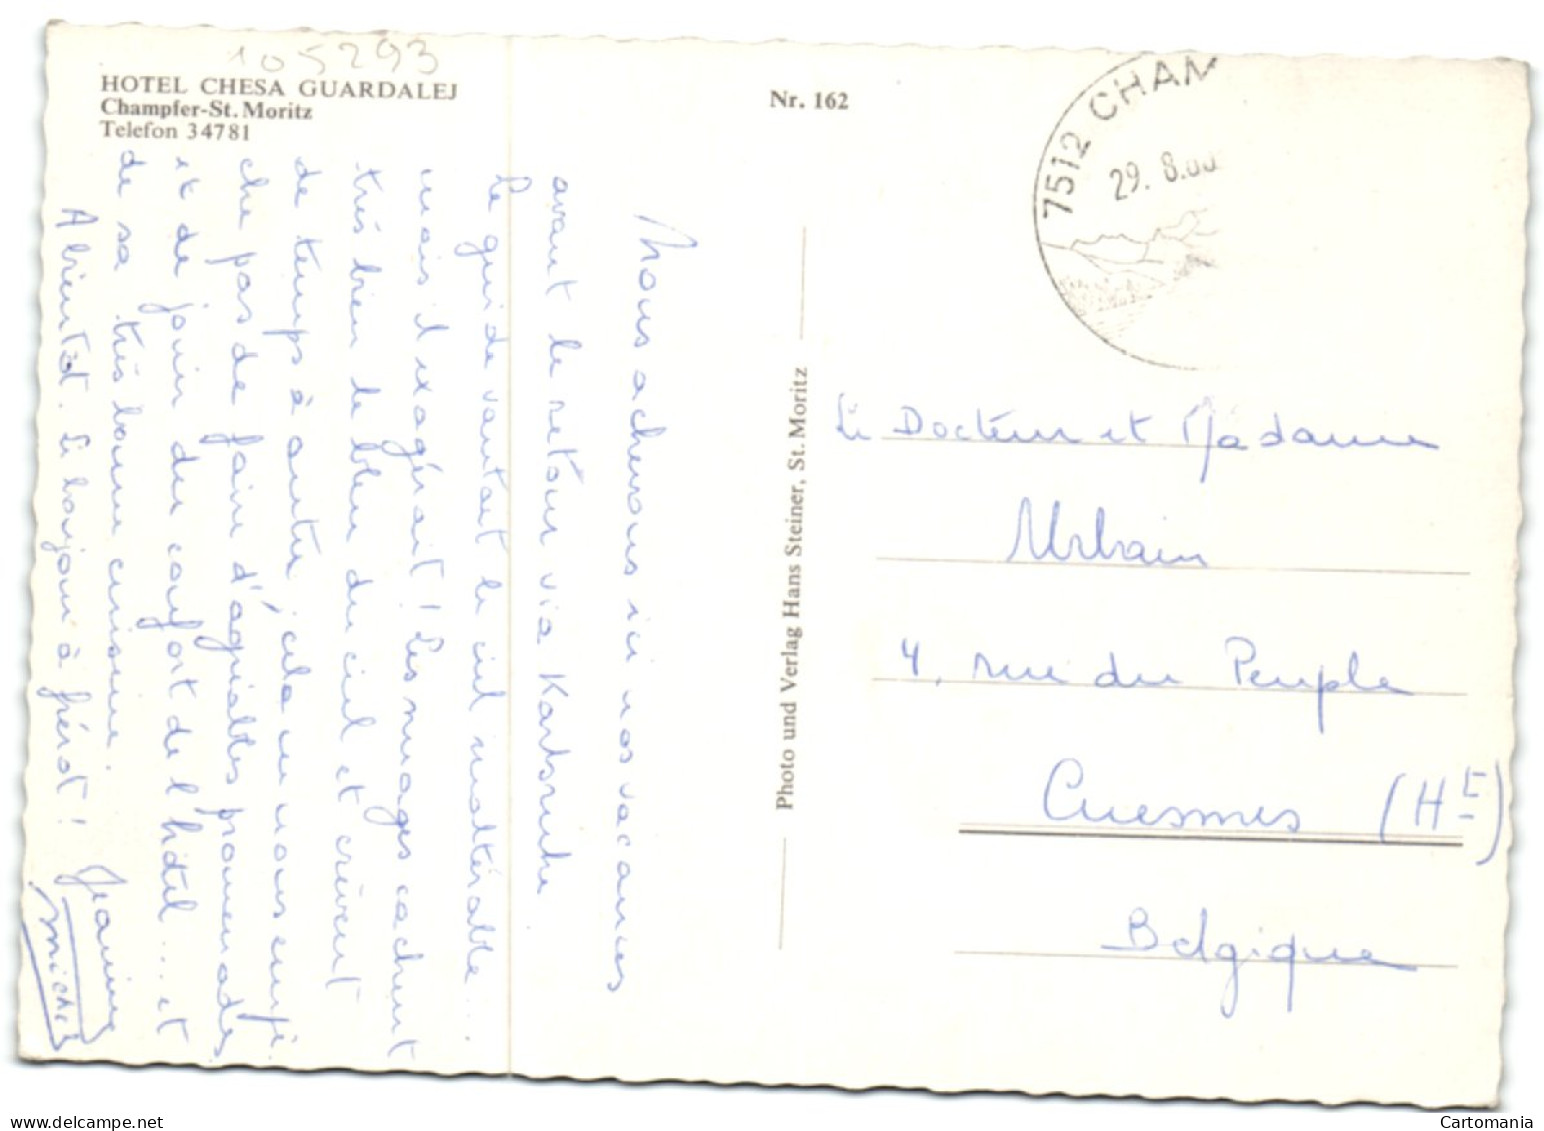 105293
HOTEL CHESA GUARDALEJ
Champfer-St. Moritz
Telefon 34781
Nr. 162
7512 CHAM
29. 8.
Nous achevons ici nos vacances
avant le retour via Karlsruhe.
Le guide vantait le ciel inaltérable...
mais il exagérait ! Les nuages cachent
très bien le bleu du ciel et crèvent
de temps à autre ; cela ne nous empê
che pas de faire d'agréables promenades
et de jouir du confort de l'hôtel.... et
de sa très bonne cuisine.
A bientôt. Le bonjour à frérot ! Jeanine
Michel
Photo und Verlag Hans Steiner, St. Moritz
Le Docteur et Madame
Urbain
4, rue du Peuple
Cuesmes (Ht)
Belgique
delcampe.net
Cartomania